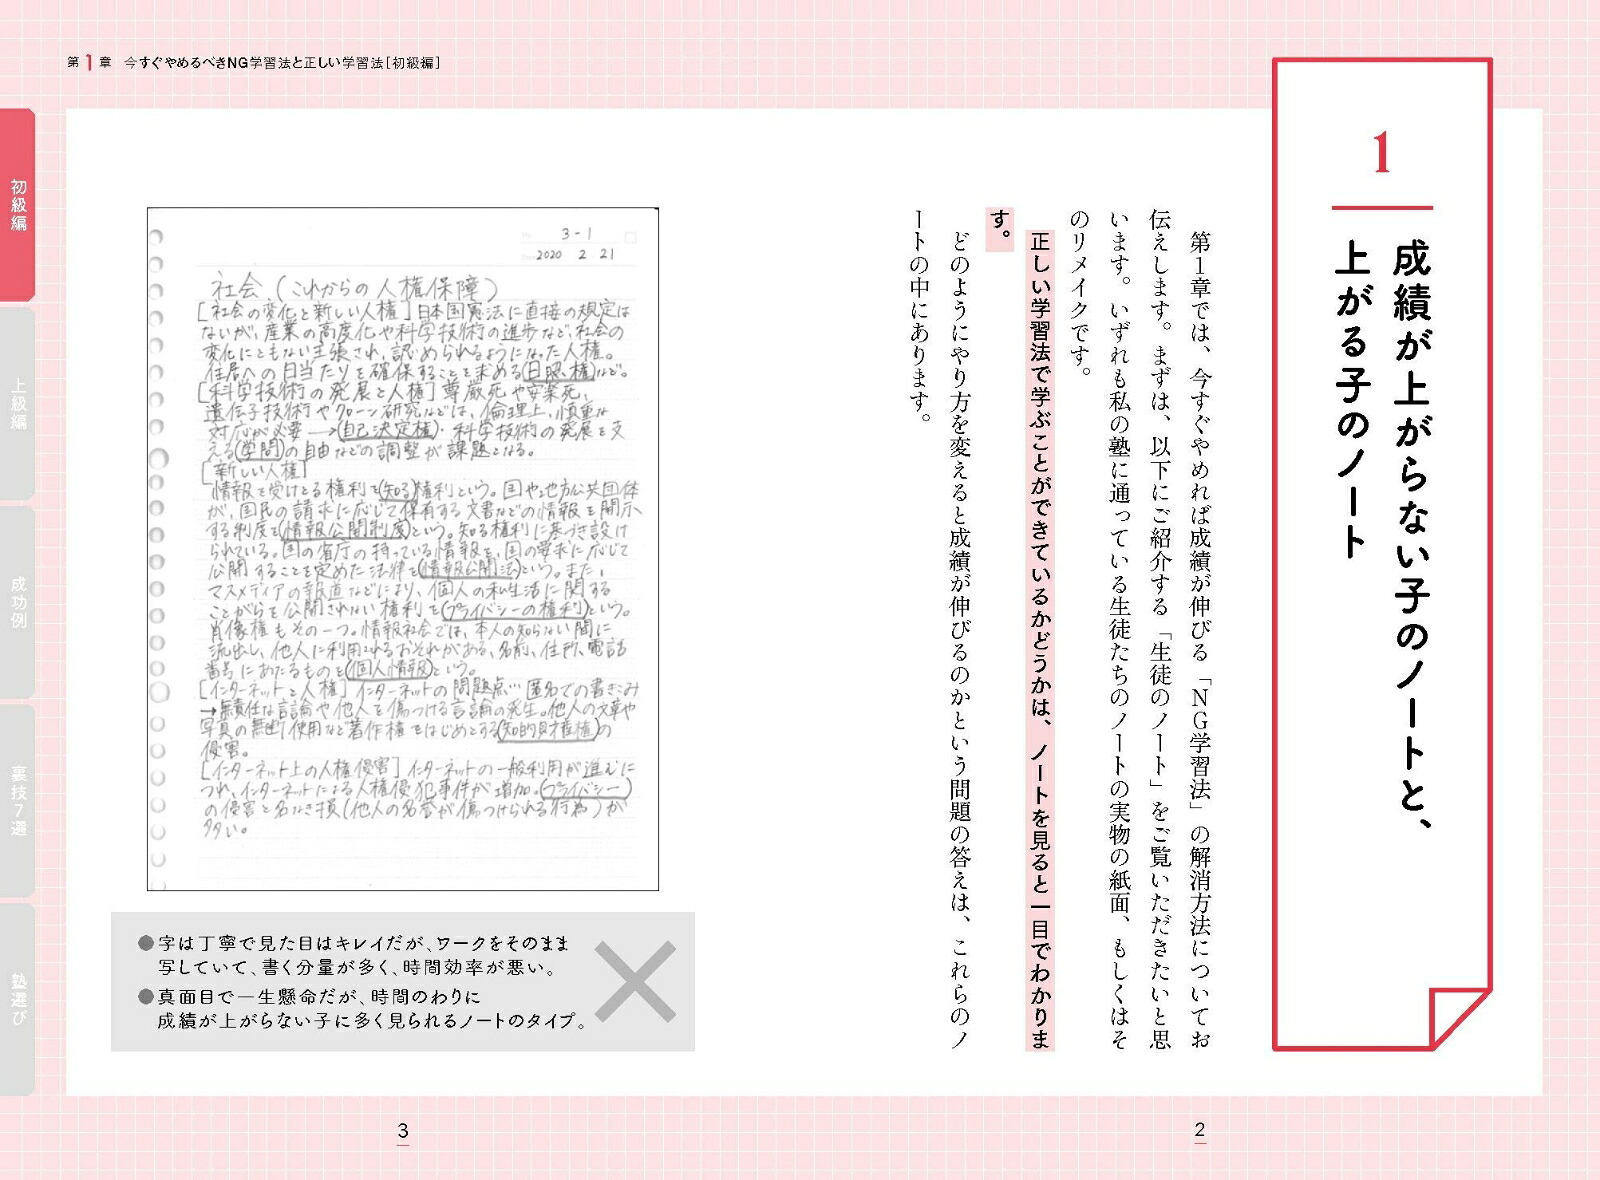 第1章 今すぐやめるべきNG学習法と正しい学習法[初級編]
1
成績が上がらない子のノートと、
上がる子のノート
第1章では、今すぐやめれば成績が伸びる「NG学習法」の解消方法についてお
伝えします。まずは、以下にご紹介する「生徒のノート」をご覧いただきたいと思
います。いずれも私の塾に通っている生徒たちのノートの実物の紙面、もしくはそ
のリメイクです。
正しい学習法で学ぶことができているかどうかは、ノートを見ると一目でわかりま
す。
どのようにやり方を変えると成績が伸びるのかという問題の答えは、これらのノ
ートの中にあります。
2
初級編
上級編
成功例
裏技7選
塾選び
3-1
2020 2 21
社会(これからの人権保障)
[社会の変化と新しい人権]日本国憲法に直接の規定は
ないが、産業の高度化や科学技術の進歩など、社会の
変化にともない主張され、認められるようになった人権。
住居への日当たりを確保することを求める(日照権)など。
[科学技術の発展と人権]尊厳死や安楽死、
遺伝子技術やクローン研究などは、倫理上、慎重な
対応が必要→(自己決定権)・科学技術の発展を支
える(学問)の自由などの調整が課題となる。
[新しい人権]
情報を受けとる権利を(知る)権利という。国や地方公共団体
が、国民の請求に応じて保有する文書などの情報を開示
する制度を(情報公開制度)という。知る権利に基づき設け
られている。国の省庁の持っている情報を、国の要求に応じて
公開することを定めた法律を(情報公開法)という。また、
マスメディアの報道などにより、個人の私生活に関する
ことがらを公開されない権利を(プライバシーの権利)という。
肖像権もその一つ。情報社会では、本人の知らない間に
流出し、他人に利用されるおそれがある、名前、住所、電話
番号にあたるものを(個人情報)という。
[インターネットと人権]インターネットの問題点…匿名での書きこみ
→無責任な言論や他人を傷つける言論の発生。他人の文章や
写真の無断使用など著作権をはじめとする(知的財産権)の
侵害。
[インターネット上の人権侵害]インターネットの一般利用が進むに
つれ、インターネットによる人権侵犯事件が増加。(プライバシー)
の侵害と名よき損(他人の名誉が傷つけられる行為)が
多い。
●字は丁寧で見た目はキレイだが、ワークをそのまま
写していて、書く分量が多く、時間効率が悪い。
●真面目で一生懸命だが、時間のわりに
成績が上がらない子に多く見られるノートのタイプ。
3